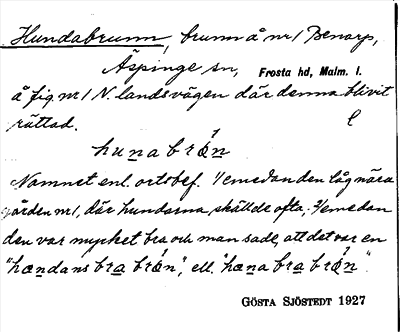 Hundabrunn, brunn å nr 1 Benarp,
Äspinge sn, Frosta hd, Malm. l.
å fig. nr 1 N. landsvägen där denna blivit
rättad. l
hunabrån
Namnet enl. ortsbef. 1/ emedan den låg nära
gården nr 1, där hundarna skällde ofta, 2/ emedan
den var mycket bra och man sade, att det var en
"hændans bra brån", ell. "hæna bra brån".
GÖSTA SJÖSTEDT 1927